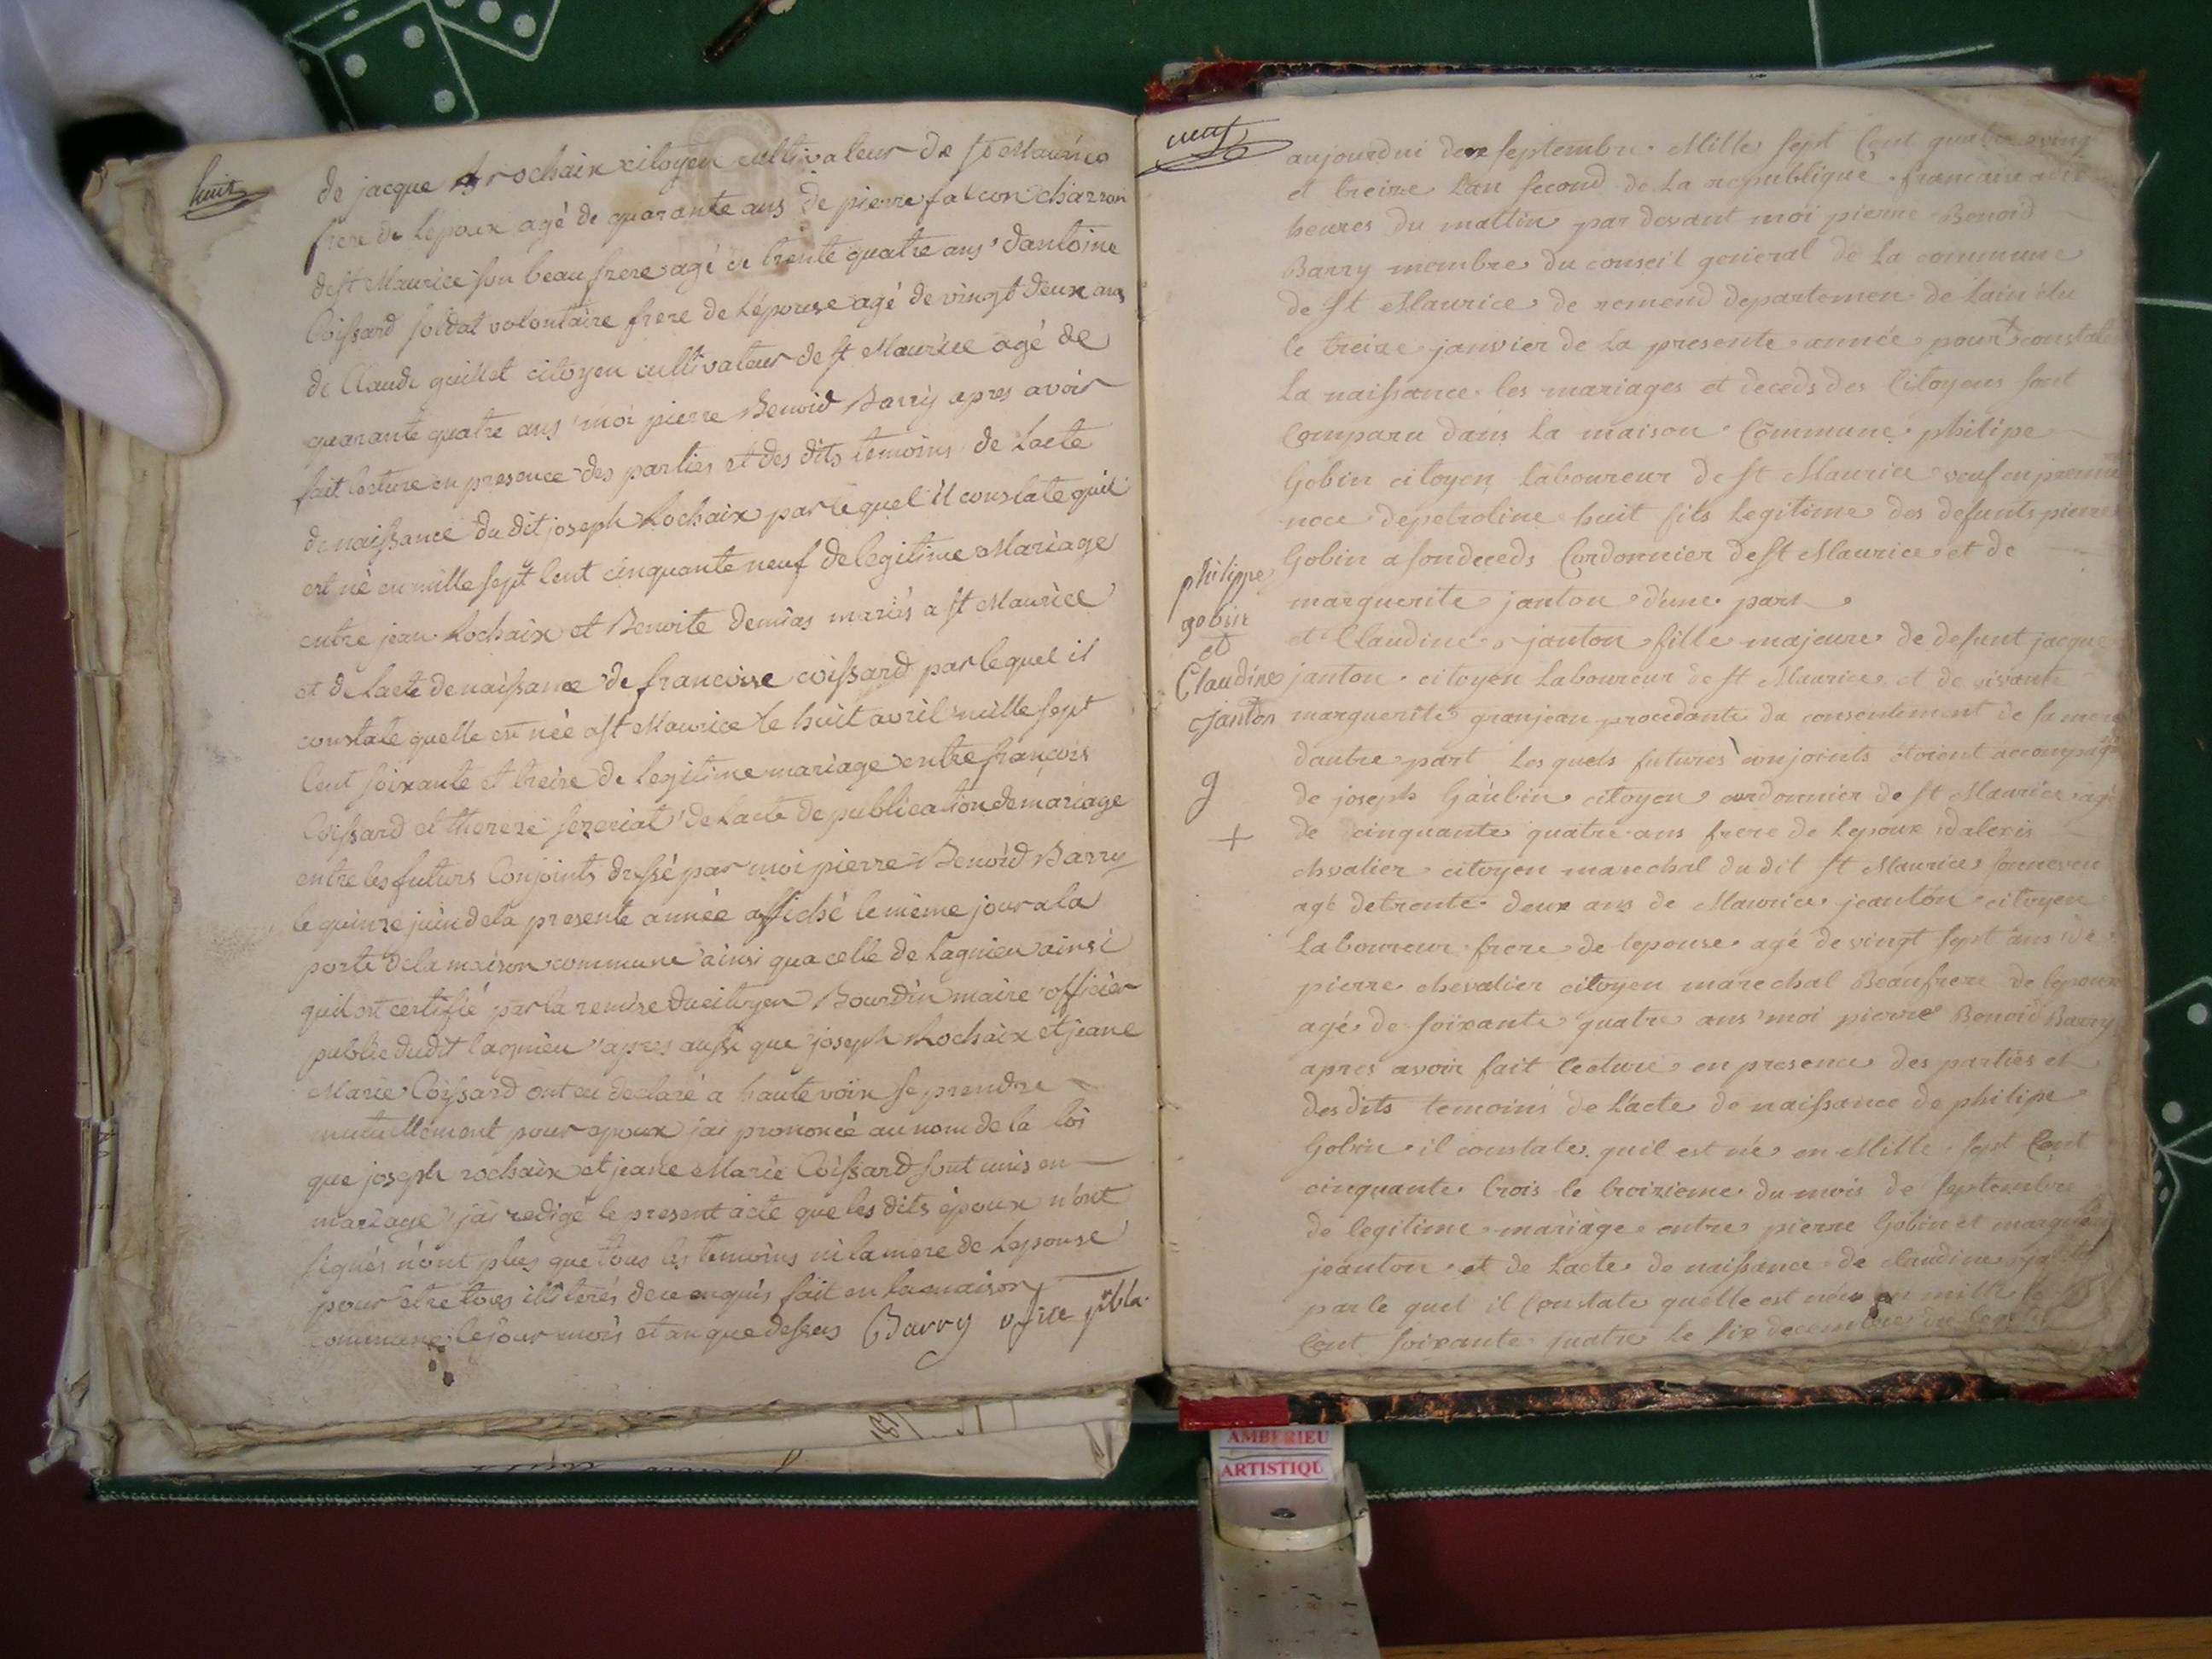 huit
de jacque rochaix citoyen cultivateur de st Maurice
frere de lepoux agé de quarante ans de pierre falcon charron
de st Maurice son beau frere agé de trente quatre ans dantoine
Coissard soldat volontaire frere de lépouse agé de vingt deux ans
de Claude guillet citoyen cultivateur de st Maurice agé de
quarante quatre ans moi pierre Benoid Barry apres avoir
fait lecture en presence des parties et des dits temoins de lacte
de naissance du dit joseph Rochaix par le quel il constate quil
est né en mille sept Cent cinquante neuf de legitime Mariage
entre jean Rochaix et Benoite demias mariés a st Maurice
et de lacte de naissance de francoise coissard par lequel il
constate quelle est née a st Maurice le huit avril mille sept
Cent soixante et treize de legitime mariage entre françois
Coissard et therese de lacte de publication de mariage
entre les futurs Conjoints dressé par moi pierre Benoid Barry
le quinze juin de la presente année affiché le même jour a la
porte de la maison commune ainsi qua celle de Lagnieu ainsi
quil est certifié par la remise du citoyen Bourdin maire officier
public dudit lagnieu apres aussi que joseph Rochaix et jeane
Marie Coissard ont eu declaré a haute voix se prendre
mutuellement pour epoux jai prononcé au nom de la loi
que joseph rochaix et jeane Marie Coissard sont unis en
mariage jai redigé le present acte que les dits époux n'ont
signés n'ont plus que tous les temoins ni la mere de lepouse
pour etre tous illiterés de ce enquis fait en la maison
commune le jour mois et an que dessus Barry ofice publa
neuf
aujourdui deux septembre Mille sept Cent quatre ving
et treize Lan second de la republique francaise a dix
heures du mattin par devant moi pierre Benoid
Barry membre du conseil general de la commune
de st Maurice de remend departemen de lain élu
le treize janvier de la presente année pour constater
la naissance les mariages et deceds des Citoyens sont
Comparu dans la maison Commune philipe
Gobin citoyen laboureur de st Maurice veuf en premiere
noce depetroline huit fils legitime des defunts pierre
Gobin a son deceds Cordonnier de st Maurice et de
marguerite janton d'une part
philippe
gobin
et
Claudine
Janton
g
+
et Claudine janton fille majeure de defunt jacque
janton citoyen laboureur de st Maurice et de vivante
marguerite granjean procedante du consentement de sa mere
dautre part les quels futures conjoints étoient accompagné
de joseph Gaubin citoyen cordonnier de st Maurice agé
de cinquante quatre ans frere de lepoux dalexis
chvalier citoyen marechal du dit st Maurice son neveu
agé de trente deux ans de Maurice jeanton citoyen
laboureur frere de lepouse agé de vingt sept ans de
pierre chevalier citoyen marechal Beaufrere de lepoux
agé de soixante quatre ans moi pierre Benoid Barry
apres avoir fait lecture en presence des parties et
des dits temoins de lacte de naissance de philipe
Gobin il constate quil est né en Mille sept Cent
cinquante trois le troizieme du mois de septembre
de legitime mariage entre pierre Gobin et marguerite
jeanton et de lacte de naissance de claudine
par le quel il Constate quelle est née en mille
Cent soixante quatre le six decembre
AMBERIEU
ARTISTIQU